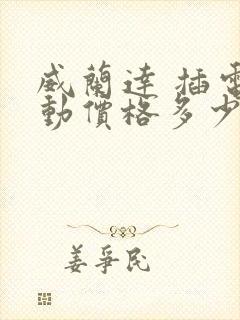 威蘭達 插電
動價格多少
姜爭民